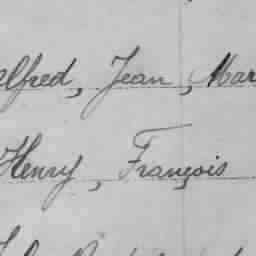 Alfred, Jean, Mar
Henry, François